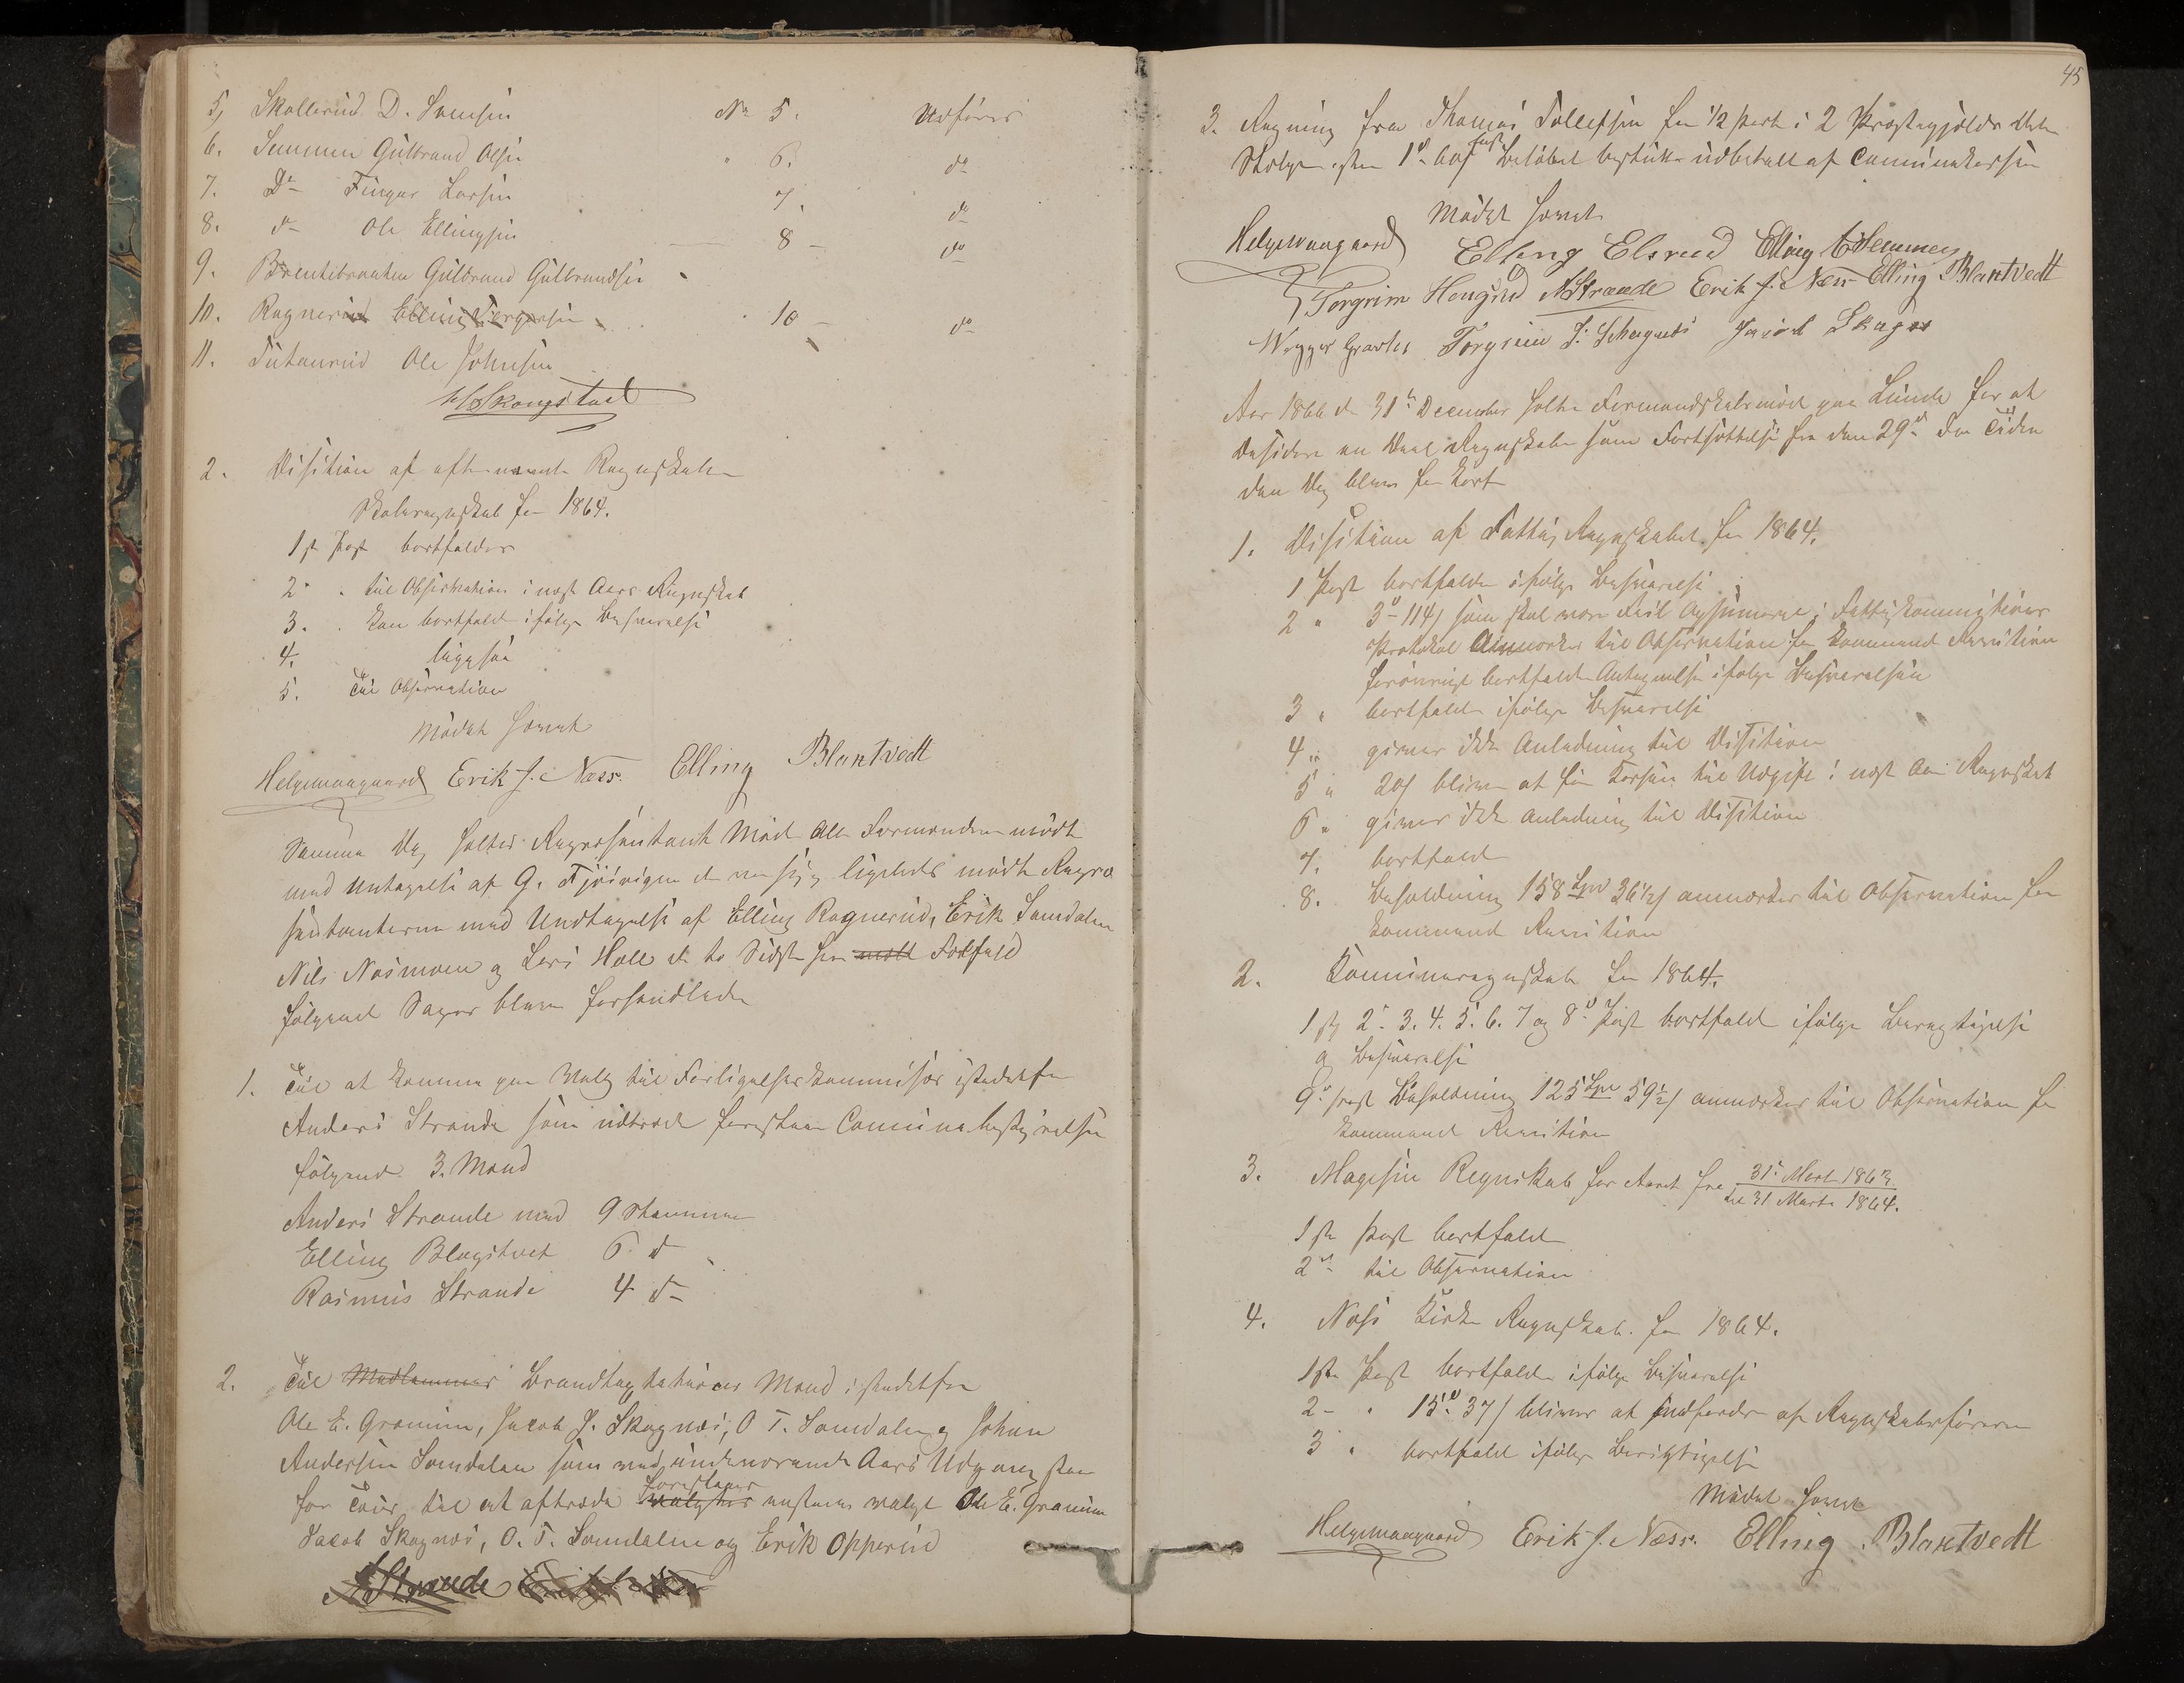 5, Skollerud D. Svensen No 5. Udföres
6. Semmen Gulbrand Olsen " 6. do
7. Do Fingar Larsen 7. do
8. do Ole Ellingsen 8 do
9. Brentebraaten Gulbrand Gulbrandsen
10. Ragnerud Elling Torgersen 10 do
11. Tutanrud Ole Johnsen
Skongstad
2. Desition af efternævnte Regnskaber
Skoleregnskab for 1864.
1ste Post bortfalder
2 " til Observation i næste Aars Regnskab
3. " kan bortfalde ifølge Besvarelse
4. ligesaa
5. Til Observation
Mødet hævet
Helgewaagaard Erik J. Næss. Elling Blaktvedt
Samme Dag holtes Repræsentant Møde Alle Formændene mødte
med Untagelse af G. som er syg ligeledes mødte Repræ
sentanterne med Undtagelse af Elling Ragnerud, Erik Somdalen
Nils Næsmoen og Lars Hole de to Sidste har Forfald
følgende Sager bleve forhandlede
1. Til at komme paa Valg til Forligelseskommisær istedetfor
Anders Strande som udtræder foreslaar Comunebestyrelsen
følgende 3. Mænd
Anders Strande med 9 Stemmer
Elling Blagstvet 6 do
Rasmus Strande 4 do
2. Til Medlemmer Brandtagtations Mænd istedetfor
Ole E. Gromin, Jacob J. Skagnæs, O T. Somdalen og Johan
Andersen Somdalen som ved indeværende Aars Udgang staar
for Tour til at aftræde Foreslaaes Ole E. Gromin
Jacob Skagnæs, O. T. Somdalen og Erik Opperud
AStrande
45
3. Regning fra Thomas Tollefsen for 1/2 Part i 2 Præstegjelds
1d 60s Beløbet besluttes udbetalt af Comunekassen
Mødet hævet
Helgewaagaard Elling Elsrud Elling E Semmen
Torgrim Hougsrud AStrande Erik J. Næss Elling Blaktvedt
Torgrim J: Jacob Skagnæs
Aar 1866 d 31te December holtes Formandskabsmøde paa Lunde for at
desidere en Deel Regnskaber som Fortsættelse fra den 29de da Tiden
den Dag blev for kort
1. Desition af Fattig Regnskabet for 1864.
1 Post bortfalder ifølge Besvarelse
2 " 3d 114s som skal være Feil Opsumeret i Fattigkommisionens
Protokol Anmærkes til Observation for kommende Revision
forøvrigt bortfalder Antegnelsen ifølge Besvarelsen
3 " bortfalder ifølge Besvarelse
4 " giver ikke Anledning til Desition
5 " 20s bliver at føre Kassen til Udgift i næste Aars Regnskab
6 " giver ikke Anledning til Desition
7. bortfalder
8. Beholdning 158 Spd 36 1/2s anmærkes til Observation for
kommende Revition
2. Komuneregnskab for 1864.
1ste 2. 3. 4. 5. 6. 7 og 8de Post bortfalder ifølge Berigtigelse
og Besvarelse
9de Post Beholdning 125 Spd 59 1/2s anmærkes til Observation for
kommende Revition
3. Magesin Regnskab for Aaret fra 31te Marts 1863
til 31 Marts 1864.
1ste Post bortfalder
2de til Observation
4. Næss Kirke Regnskab for 1864.
1ste Post bortfalder ifølge Besvarelse
2 " 15d 37s bliver at indfordre af Regnskabsføreren
3 " bortfalder ifølge Berigtigelse
Mødet hævet
Helgewaagaard Erik J. Næss. Elling Blaktvedt